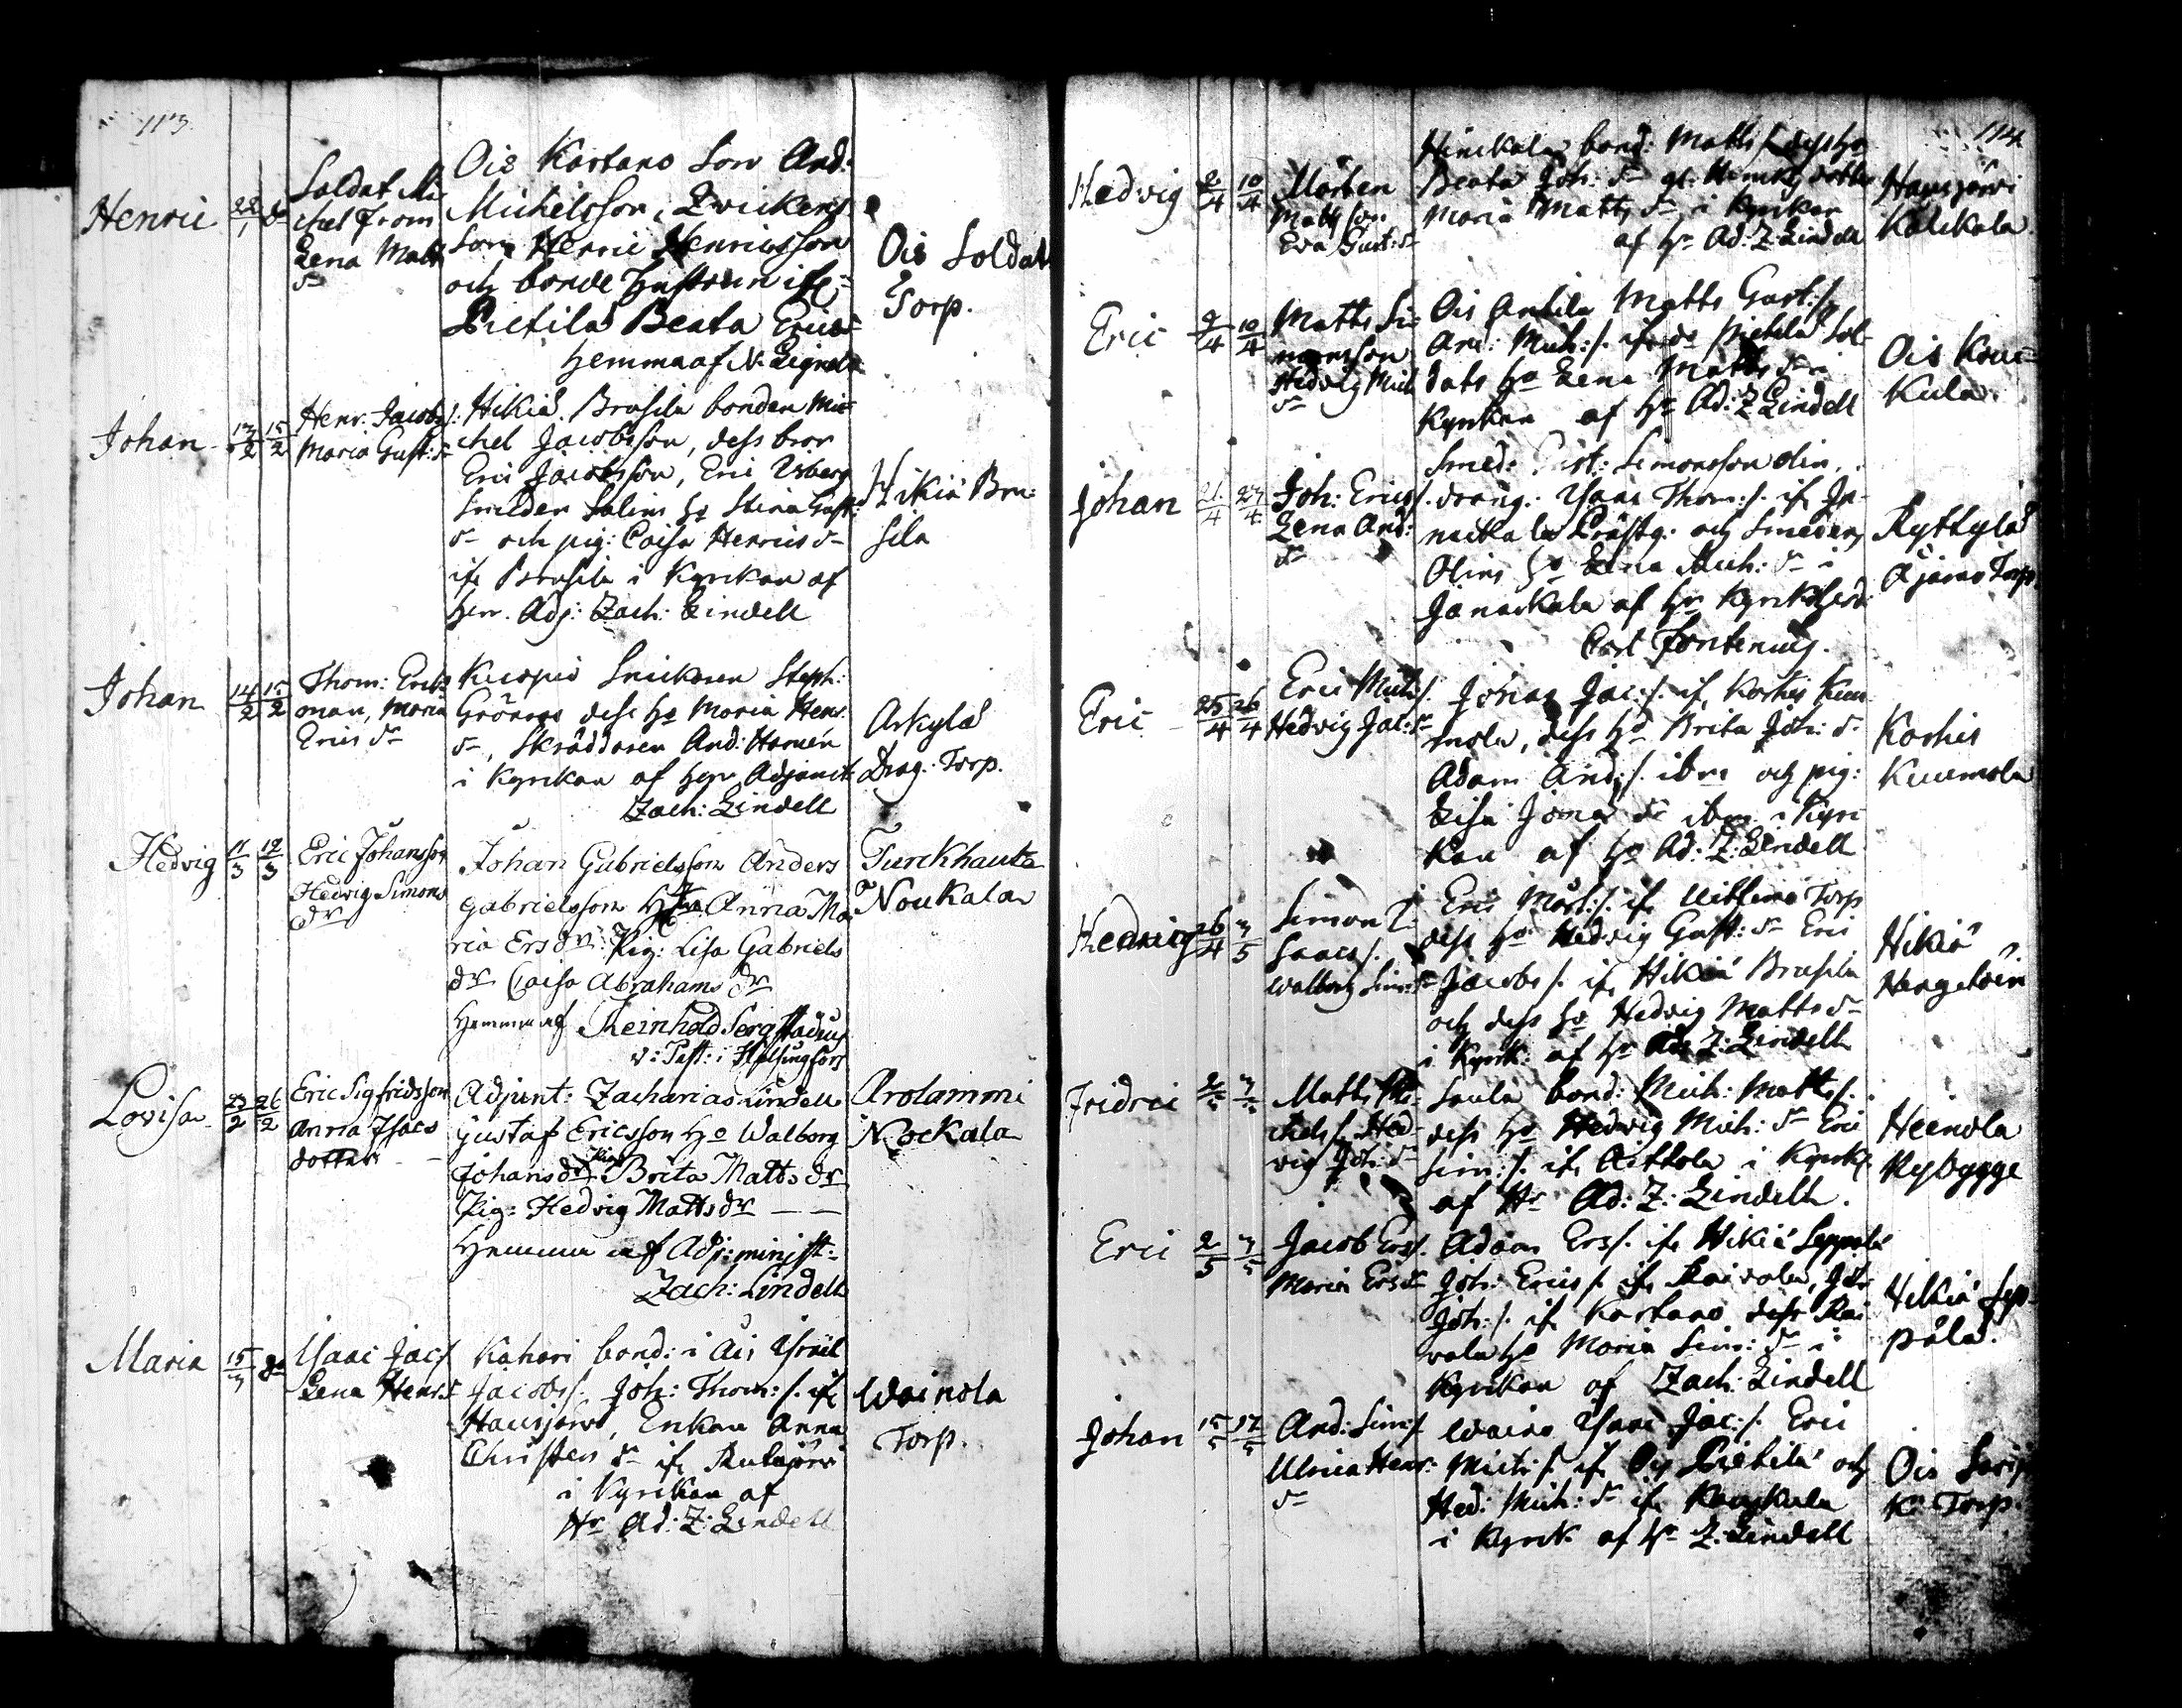 113.
Henric 22/1 do
Soldat Mi
chel From
Lena Matts
dr
Ois Kartano Son And:
Michelsson, Zvickens
Son Henric Henricsson
och bonde hustrun if
Pietilä Beata Erics
hemma af N. Lignell
Ois Soldat
Torp.
Johan 13/2 15/2
Henr. Jacobs/.
Maria Gust: dr
Hikiä Brusila bonden Mi
chel Jacobsson, dess bror
Eric Jacobsson, Eric Usberg
Smeden Salins ho Stina Gust:
dr och pig: Caisa Henrics dr
if Brusila i Kyrckan af
Herr. Adj: Zach: Lindell
Hikiä Bru
sila
Johan 14/2 15/2
Thom: Erks
man, Maria
Erics dr
Kuopio Snickaren Steph:
Grönroos dess ho Maria Henr:
dr, Skräddaren And: Hornén
i Kyrckan af Herr Adjunct
Zach: Lindell
Arkylä
Drag. Torp.
Hedvig 11/3 12/3
Eric Johansson
Hedvig Simons
dr
Johan Gabrielsson Anders
Gabrielsson Hu Anna Ma
ria Ers dr: Pig: Lisa Gabriels
dr Caisa Abrahams dr
Hemma af Reinhold Sergstadius
v: Past: i Helsingfors
Turckhauta
Noukala
Lovisa 23/2 26/2
Eric Sigfridsson
Anna Isacs
dotter
Adjunt: Zacharias Lindell
Gustaf Ericsson Ho Walborg
Johansdr Pig: Brita Matts dr
Pig: Hedvig Matts dr
Hemma af Adj: minist:
Zach: Lindell
Arolammi
Nockala
Maria 15/3 do
Isaac Jac/.
Lena Henr: dr
Kahari bond: i Ois Israel
Jacobs/. Joh: Thom:/. if
Hausjärvi, Enkan Anna
Christers dr if
i Kyrckan af
Hr Ad: Z: Lindell
Wainola
Torp.
114
Hedvig 2/4 10/4
Mårten
Matsson
Eva Gust: dr
Hinckala bond: Matts/. dess ho
Beata Joh: dr dotter
Maria Matts dr i Kyrckan
af Hr Ad: Z: Lindell
Hausjärvi
Kalckala
Eric 9/4 10/4
Matts Si
monsson
Hedvig Mich
dr
Ois Antila Matts Gust:/.
And: Mich:/. if do Pietilä Sol
dats ho Lena Matts dr i
Kyrckan af Hr Ad: Z: Lindell
Ois Koui
kula.
Johan 21/4 23/4
Joh: Erics/.
Lena And:
dr
Smed: Gust: Simonsson olin,
dräng: Isaac Thom:/. if Ja
nackala Prästg: och Smeden
Olins ho Lena Mich: dr i
Janackala af Hr Kyrckoherd
Carl Fontenius.
Ryttylä
Äjämö Torp.
Eric 25/4 26/4
Eric Mich:/.
Hedvig Jac: dr
Jonas Jac:/. if Karhis Kuu
mola, dess ho Brita Joh: dr
Adam And:/. ibm och pig:
Lisa Jonas dr ibm i Kyrc
kan af Hr Ad: Z: Lindell
Karhis
Kuumola
Hedvig 26/4 3/5
Simon I
saacs/.
Walborg Sim: dr
Eric Mårt:/. if Torp
dess ho Hedvig Gust: dr Eric
Jacobs/. if Hikiä Brusila
och dess ho Hedvig Matts dr
i Kyrck: af Hr Ad: Z: Lindell
Hikiä
Hergetoin
Fridric 2/5 3/5
Matts Mi
chels/. Hed
vig Joh: dr
Saula bond: Mich: Matts/.
dess ho Hedvig Mich: dr Eric
Sim:/. if Aittola i Kyrck:
af Hr Ad: Z: Lindell.
Heinola
Nybygge
Eric 2/5 3/5
Jacob Ers/.
Maria Ers dr
Adam Ers/. if Hikiä Seppälä
Joh: Erics/. if Raivola, Joh:
Joh:/. if Kartano dess Rai
vola ho Maria Sim: dr i
Kyrckan af Zach: Lindell
Hikiä Sep
pälä.
Johan 15/5 17/5
And: Sim:/.
Ulrica Henr:
dr
Waino Isaac Jac:/. Eric
Mich:/. if Ois Pietilä och
Hed: Mich: dr if
i Kyrck. af Hr Z: Lindell
Ois
K: Torp.